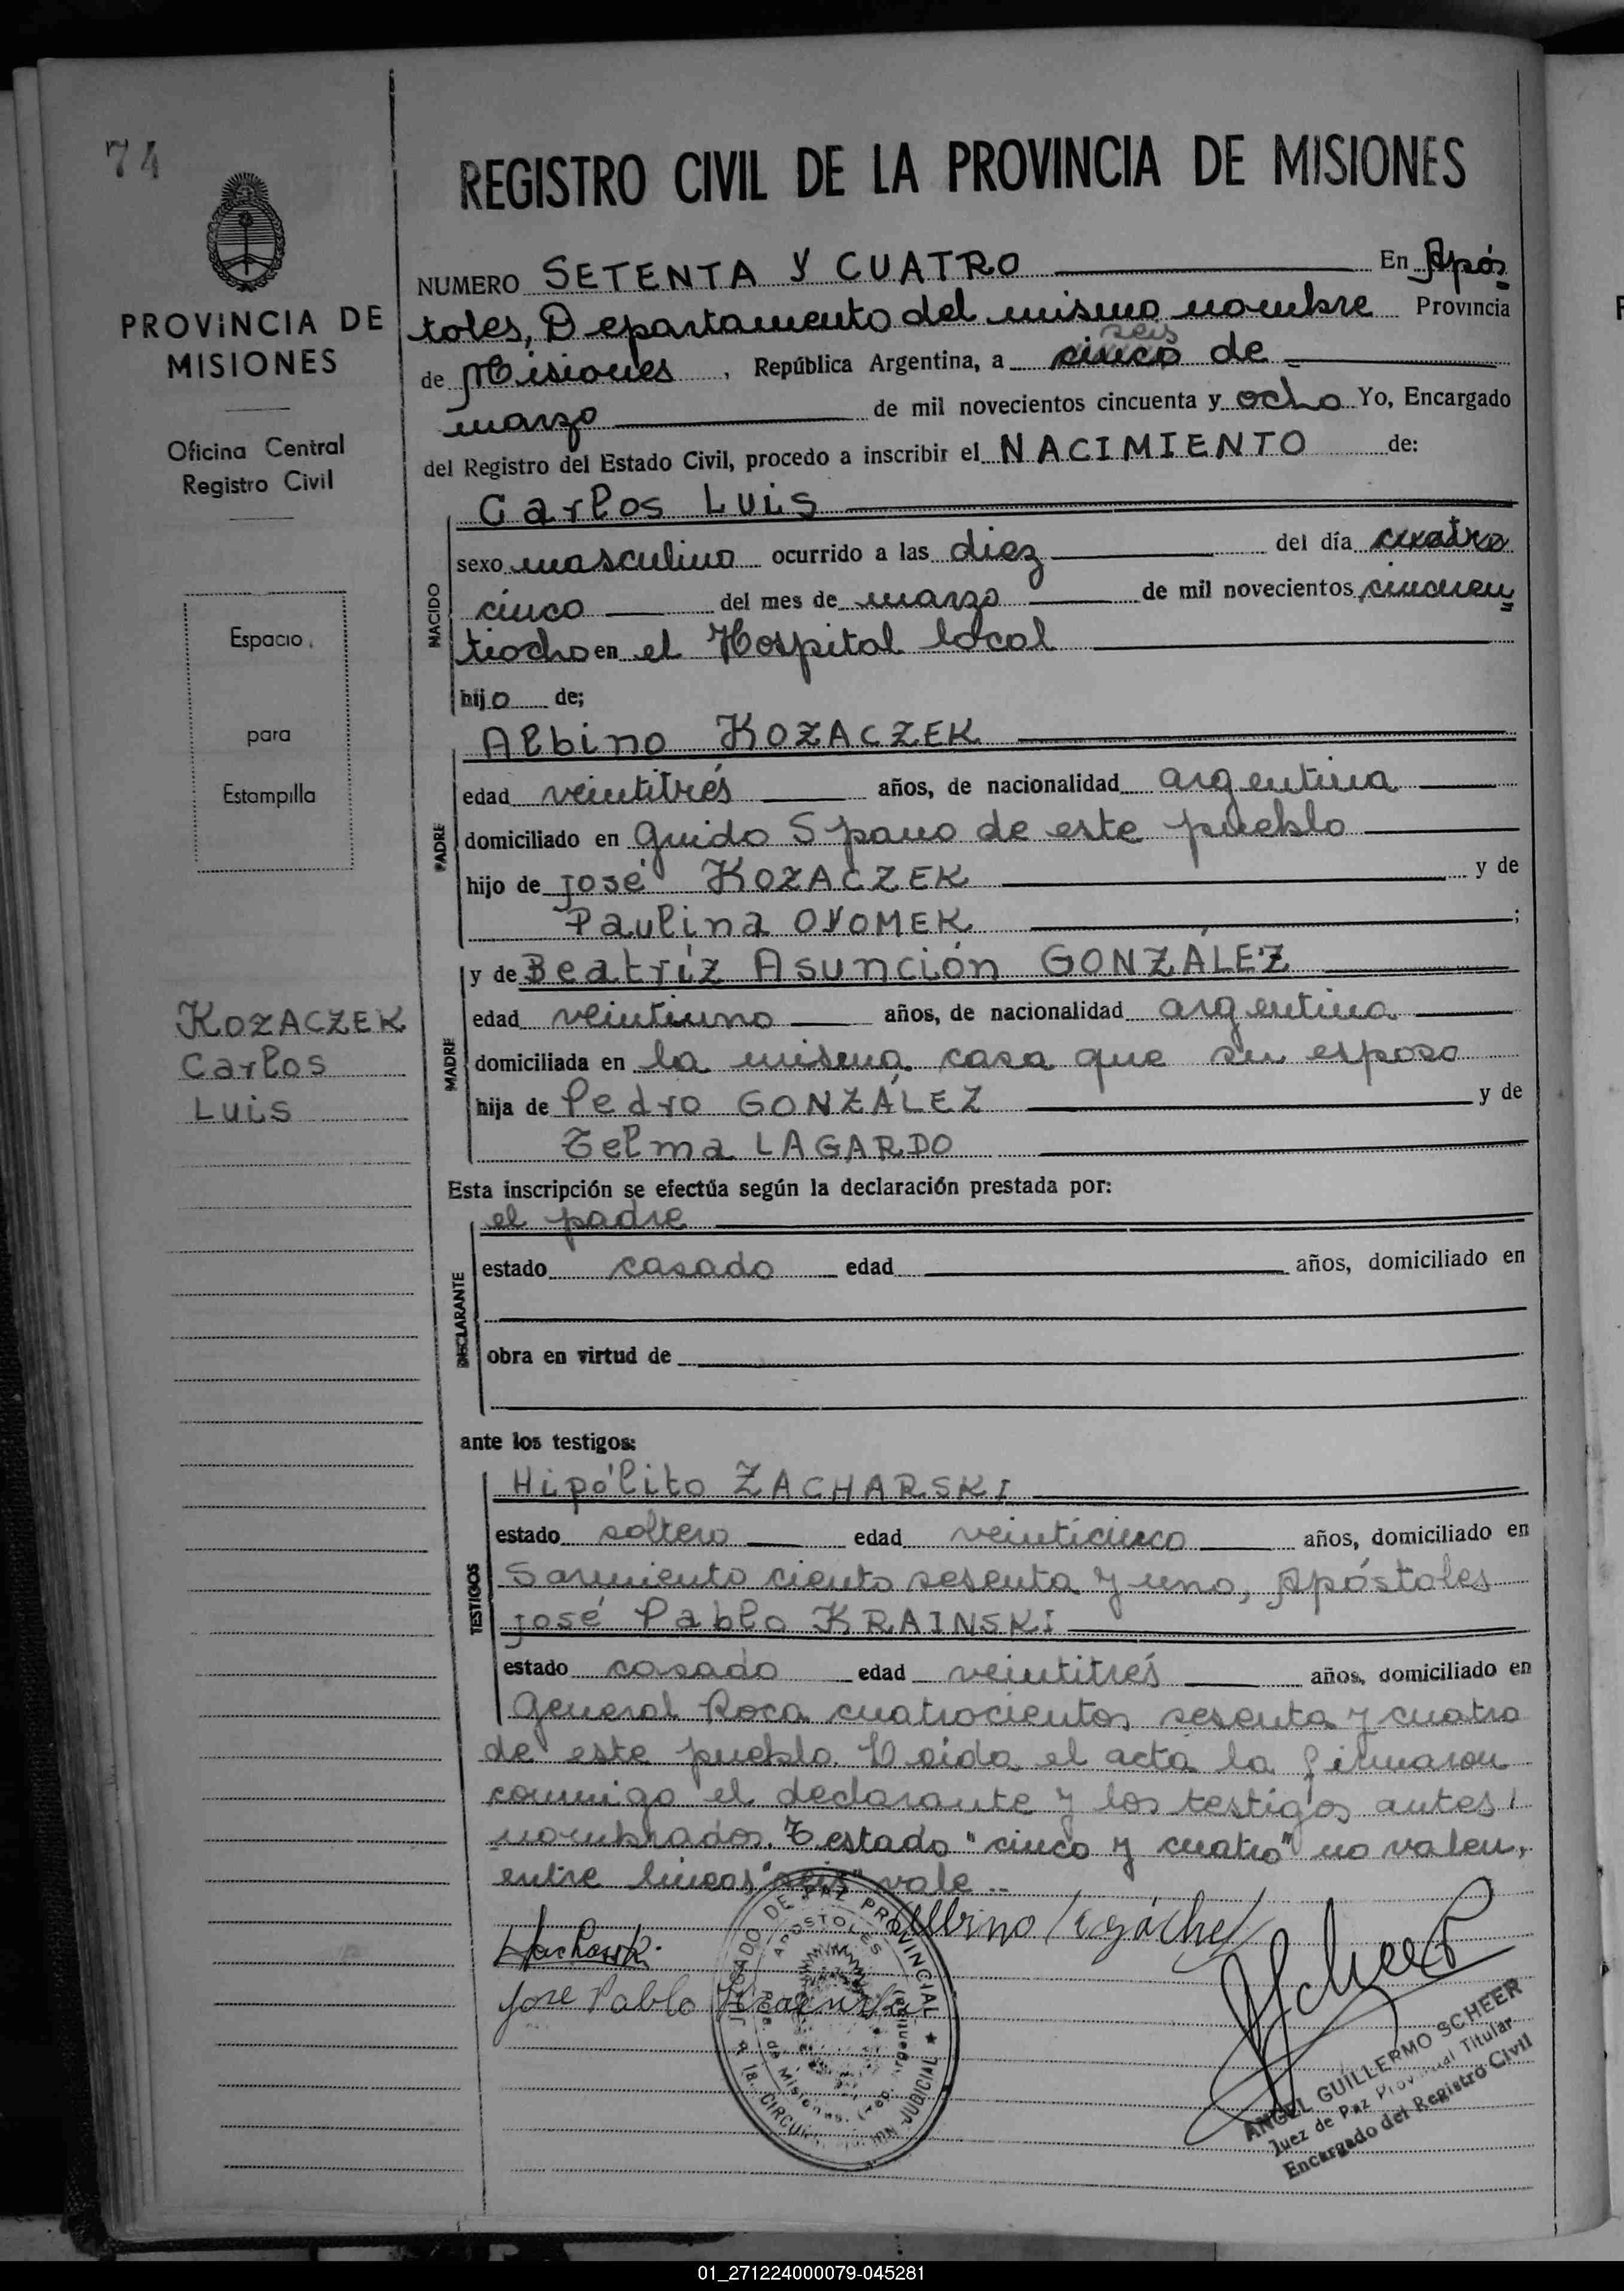 74
REGISTRO CIVIL DE LA PROVINCIA DE MISIONES
PROVINCIA DE
MISIONES
Oficina Central
Registro Civil
Espacio
para
Estampilla
KOZACZEK
Carlos
Luis
NUMERO SETENTA Y CUATRO En Após
toles, Departamento del mismo nombre Provincia
seis
de Misiones, República Argentina, a cinco de
marzo de mil novecientos cincuenta y ocho Yo, Encargado
del Registro del Estado Civil, procedo a inscribir el NACIMIENTO de:
NACIDO
Carlos Luis
sexo masculino ocurrido a las diez del día cuatro
cinco del mes de marzo de mil novecientos cincuen
tiocho en el Hospital local
hijo de;
PADRE
Albino KOZACZEK
edad veintitrés años, de nacionalidad argentina
domiciliado en Guido Spano de este pueblo
hijo de José KOZACZEK y de
Paulina OVOMEK;
MADRE
y de Beatríz Asunción GONZÁLEZ
edad veintiuno años, de nacionalidad argentina
domiciliada en la misma casa que su esposo
hija de Pedro GONZÁLEZ y de
Telma LAGARDO
Esta inscripción se efectúa según la declaración prestada por:
DECLARANTE
el padre
estado casado edad años, domiciliado en
obra en virtud de
ante los testigos:
TESTIGOS
Hipólito ZACHARSKI
estado soltero edad veinticinco años, domiciliado en
Sarmiento ciento sesenta y uno, Apóstoles
José Pablo KRAINSKI
estado casado edad veintitrés años, domiciliado en
General Roca cuatrocientos sesenta y cuatro
de este pueblo. Leída el acta la firmaron
conmigo el declarante y los testigos antes
nombrados. Testado "cinco y cuatro" no valen,
entre líneas "seis" vale..
Albino
José Pablo Krainski
Scheer
JUZGADO DE PAZ PROVINCIAL
APOSTOLES
de Misiones
JUDICIAL
ANGEL GUILLERMO SCHEER
Juez de Paz Provincial Titular
Encargado del Registro Civil
01_271224000079-045281